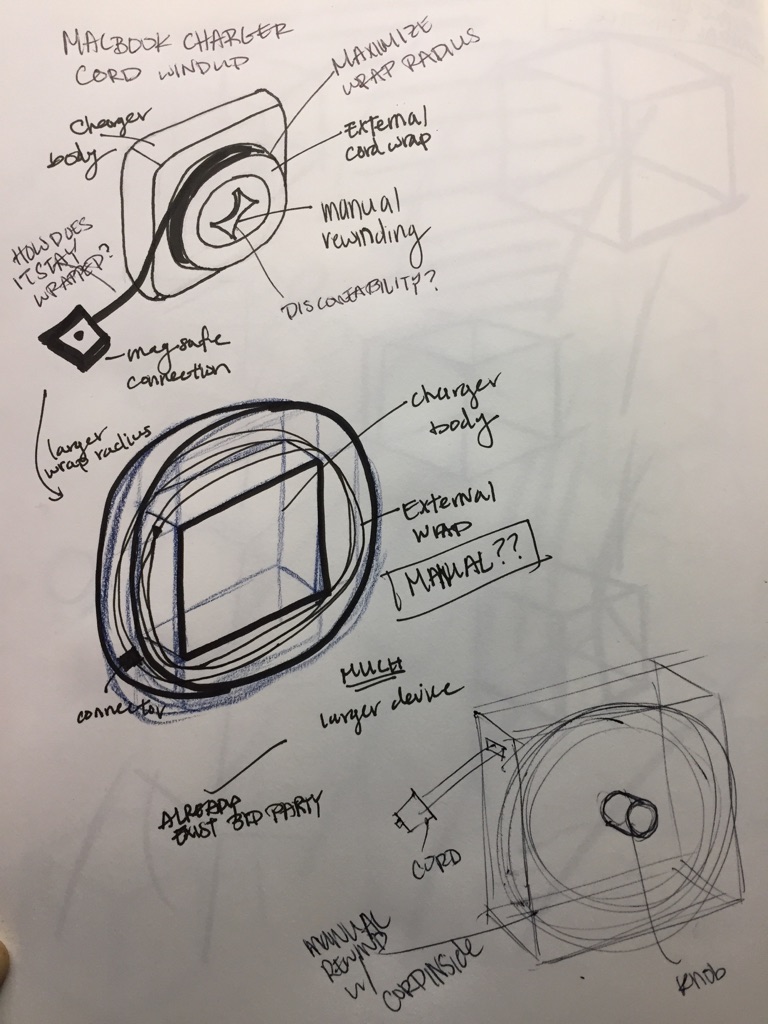 MACBOOK CHARGER
CORD WINDUP
MAXIMIZE
WRAP RADIUS
Charger
body
External
cord wrap
manual
rewinding
DISCOVERABILITY?
HOW DOES
IT STAY
WRAPPED?
magsafe
connection
larger
wrap radius
charger
body
External
wrap
MANUAL??
connector
MUCH
larger device
ALREADY
EXIST 3RD PARTY
CORD
MANUAL
REWIND
W/ CORD INSIDE
Knob